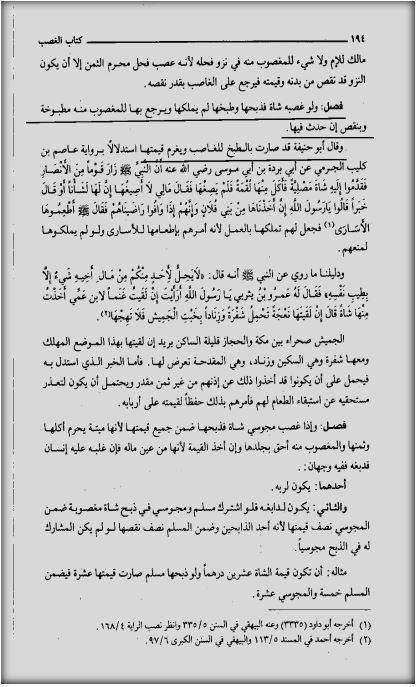 ١٩٤ كتاب الغصب
مالك للإم ولا شيء للمغصوب منه في نزو فحله لأنه عصب فحل محرم الثمن إلا أن يكون
النزو قد نقص من بدنه وقيمته فيرجع على الغاصب بقدر نقصه.
فصل: ولو غصبه شاة فذبحها وطبخها لم يملكها ويرجع بها للمغصوب منه مطبوخة
وبنقص إن حدث فيها.
وقال أبو حنيفة قد صارت بالطبخ للغاصب ويغرم قيمتها استدلالاً برواية عاصم بن
كليب الجرمي عن أبي بردة عن أبي موسى رضي الله عنه أَنَّ النَّبِيَّ ﷺ زَارَ قَوْماً مِنَ الأَنْصَارِ
فَقَدَّمُوا إِلَيْهِ شَاةً مَصْلِيَّةً فَأَكَلَ مِنْهَا لُقْمَةً فَلَمْ يَصِغْهَا فَقَالَ مَالِي لاَ أُصِيغُهَا إِنَّ لَهَا لَشَأْناً أَوْ قَالَ
خَبَراً قَالُوا يَارَسُولَ اللَّهِ إِنْ أَخَذْنَاهَا مِنْ بَنِي فُلاَنٍ وَإِنَّهُمْ إِذَا وَافُوا رَاضَيْنَاهُمْ فَقَالَ ﷺ أَطْعِمُوهَا
الأَسَارَى(١) فجعل لهم تملكها بالعمل لأنه أمرهم بإطعامها للأسارى ولو لم يملكوها
لمنعهم.
ودليلنا ما روي عن النبي ﷺ أنه قال: «لاَيَحِلُّ لأَحَدٍ مِنْكُمْ مِنْ مَالِ أَخِيهِ شَيْءٌ إِلاَّ
بِطِيبِ نَفْسِهِ» فَقَالَ لَهُ عَمْرُو بْنُ يَثْرِبِي يَا رَسُولَ اللَّهِ أَرَأَيْتَ إِنْ لَقِيتُ غَنَماً لاِبْنِ عَمِّي أَخَذْتُ
مِنْهَا شَاةً قَالَ إِنْ لَقِيتَهَا نَعْجَةً تَحْمِلُ شَفْرَةً وَزِنَاداً بِخَبْتِ الْجَمِيشِ فَلاَ تَهِجْهَا(٢).
الجميش صحراء بين مكة والحجاز قليلة الساكن يريد إن لقيتها بهذا الموضع المهلك
ومعها شفرة وهي السكين وزناد، وهي المقدحة تعرض لها. فأما الخبر الذي استدل به
فيحمل على أن يكونوا قد أخذوا ذلك عن إذنهم من غير ثمن مقدر ويحتمل أن يكون لتعذر
مستحقيه عن استبقاء الطعام لهم فأمرهم بذلك حفظاً لقيمته على أربابه.
فصل: وإذا غصب مجوسي شاة فذبحها ضمن جميع قيمتها لأنها ميتة يحرم أكلها
وثمنها والمغصوب منه أحق بجلدها وإن أخذ القيمة لأنها من عين ماله فإن غلبه عليه إنسان
فدبغه ففيه وجهان:.
أحدهما: يكون لربه.
والثاني: يكون لدابغه فلو اشترك مسلم ومجوسي في ذبح شاة مغصوبة ضمن
المجوسي نصف قيمتها لأنه أحد الذابحين وضمن المسلم نصف نقصها لو لم يكن المشارك
له في الذبح مجوسياً.
مثاله: أن تكون قيمة الشاة عشرين درهماً ولو ذبحها مسلم صارت قيمتها عشرة فيضمن
المسلم خمسة والمجوسي عشرة.
(١) أخرجه أبو داود (٣٣٣٥) وعنه البيهقي في السنن ٣٣٥/٥ وانظر نصب الراية ١٦٨/٤.
(٢) أخرجه أحمد في المسند ١١٣/٥ والبيهقي في السنن الكبرى ٩٧/٦.